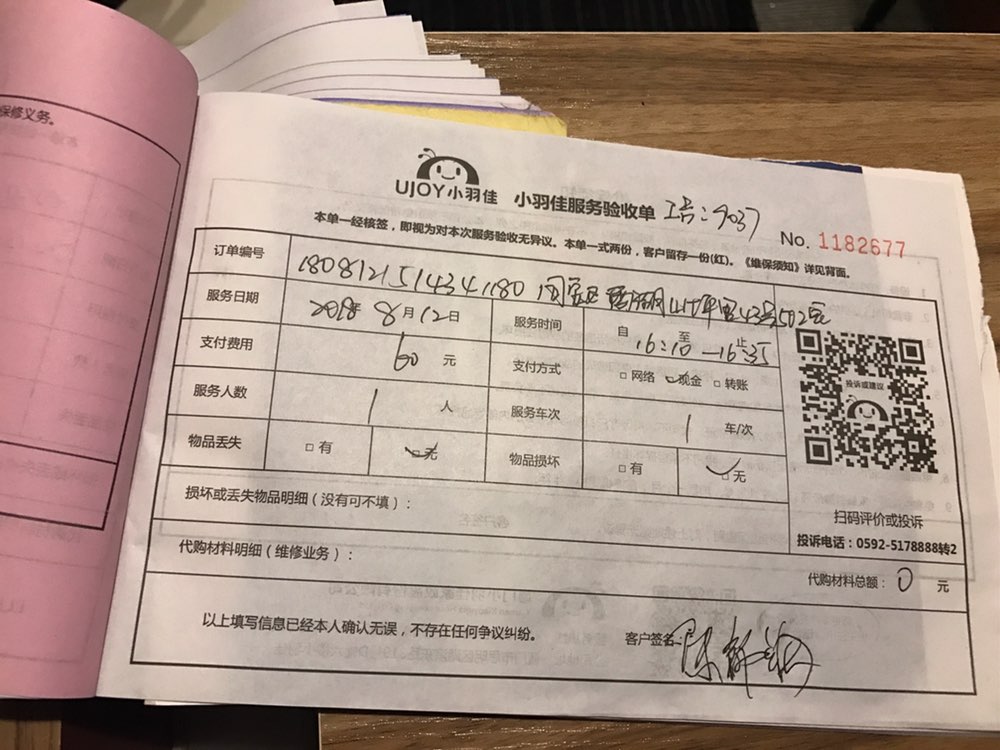 保修义务。
UJOY小羽佳 小羽佳服务验收单 工号:9037
No. 1182677
本单一经核签,即视为对本次服务验收无异议。本单一式两份,客户留存一份(红)。《维保须知》详见背面。
订单编号 1808121514341180 43号502室
服务日期 2018年8月12日 服务时间 自 16:10 至 16:35 止
支付费用 60 元 支付方式 □网络 ☑现金 □转账
服务人数 1 人 服务车次 1 车/次
物品丢失 □有 ☑无 物品损坏 □有 ☑无
投诉或建议
扫码评价或投诉
投诉电话:0592-5178888转2
损坏或丢失物品明细(没有可不填):
代购材料明细(维修业务):
代购材料总额: 0 元
以上填写信息已经本人确认无误,不存在任何争议纠纷。 客户签名